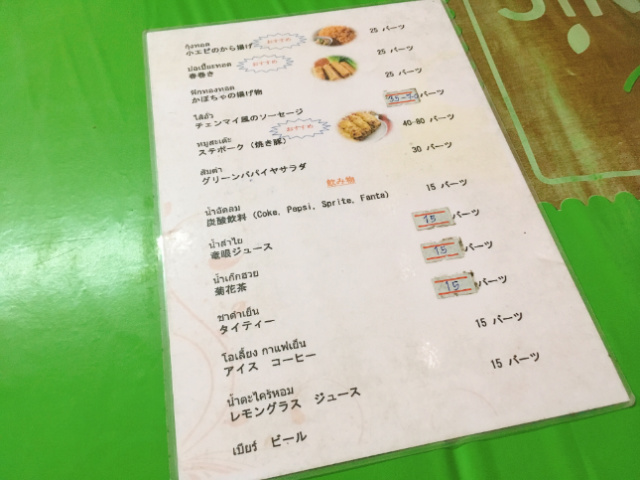 กุ้งทอด
小エビのから揚げ おすすめ 25 バーツ
ปอเปี๊ยะทอด
春巻き おすすめ 25 バーツ
ฟักทองทอด
かぼちゃの揚げ物 25 バーツ
ไส้อั่ว
チェンマイ風のソーセージ バーツ
หมูสะเต๊ะ
ステポーク (焼き豚) おすすめ 40-80 バーツ
ส้มตำ
グリーンパパイヤサラダ 30 バーツ
飲み物
น้ำอัดลม
炭酸飲料 (Coke, Pepsi, Sprite, Fanta) 15 バーツ
น้ำลำไย
竜眼ジュース 15 バーツ
น้ำเก๊กฮวย
菊花茶 15 バーツ
ชาดำเย็น
タイティー 15 バーツ
โอเลี้ยง กาแฟเย็น
アイス コーヒー 15 バーツ
น้ำตะไคร้หอม
レモングラス ジュース 15 バーツ
เบียร์ ビール